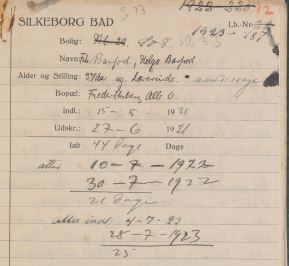 1922-220 12
SILKEBORG BAD Lb.-Nr.
1923-187
Bolig:
Navn: Frk. Barfod, Helga Barfod
Alder og Stilling: 37 Aar ug. Lærerinde.
Bopæl: Frederiksberg Allé 6.
Indl.: 15 - 5 1921
Udskr.: 27 - 6 1921
Ialt 44 Dage Dage
atter 10 - 7 - 1922
30 - 7 - 1922
21 Dage
Atter indl 4-7-23
28 - 7 - 1923
25